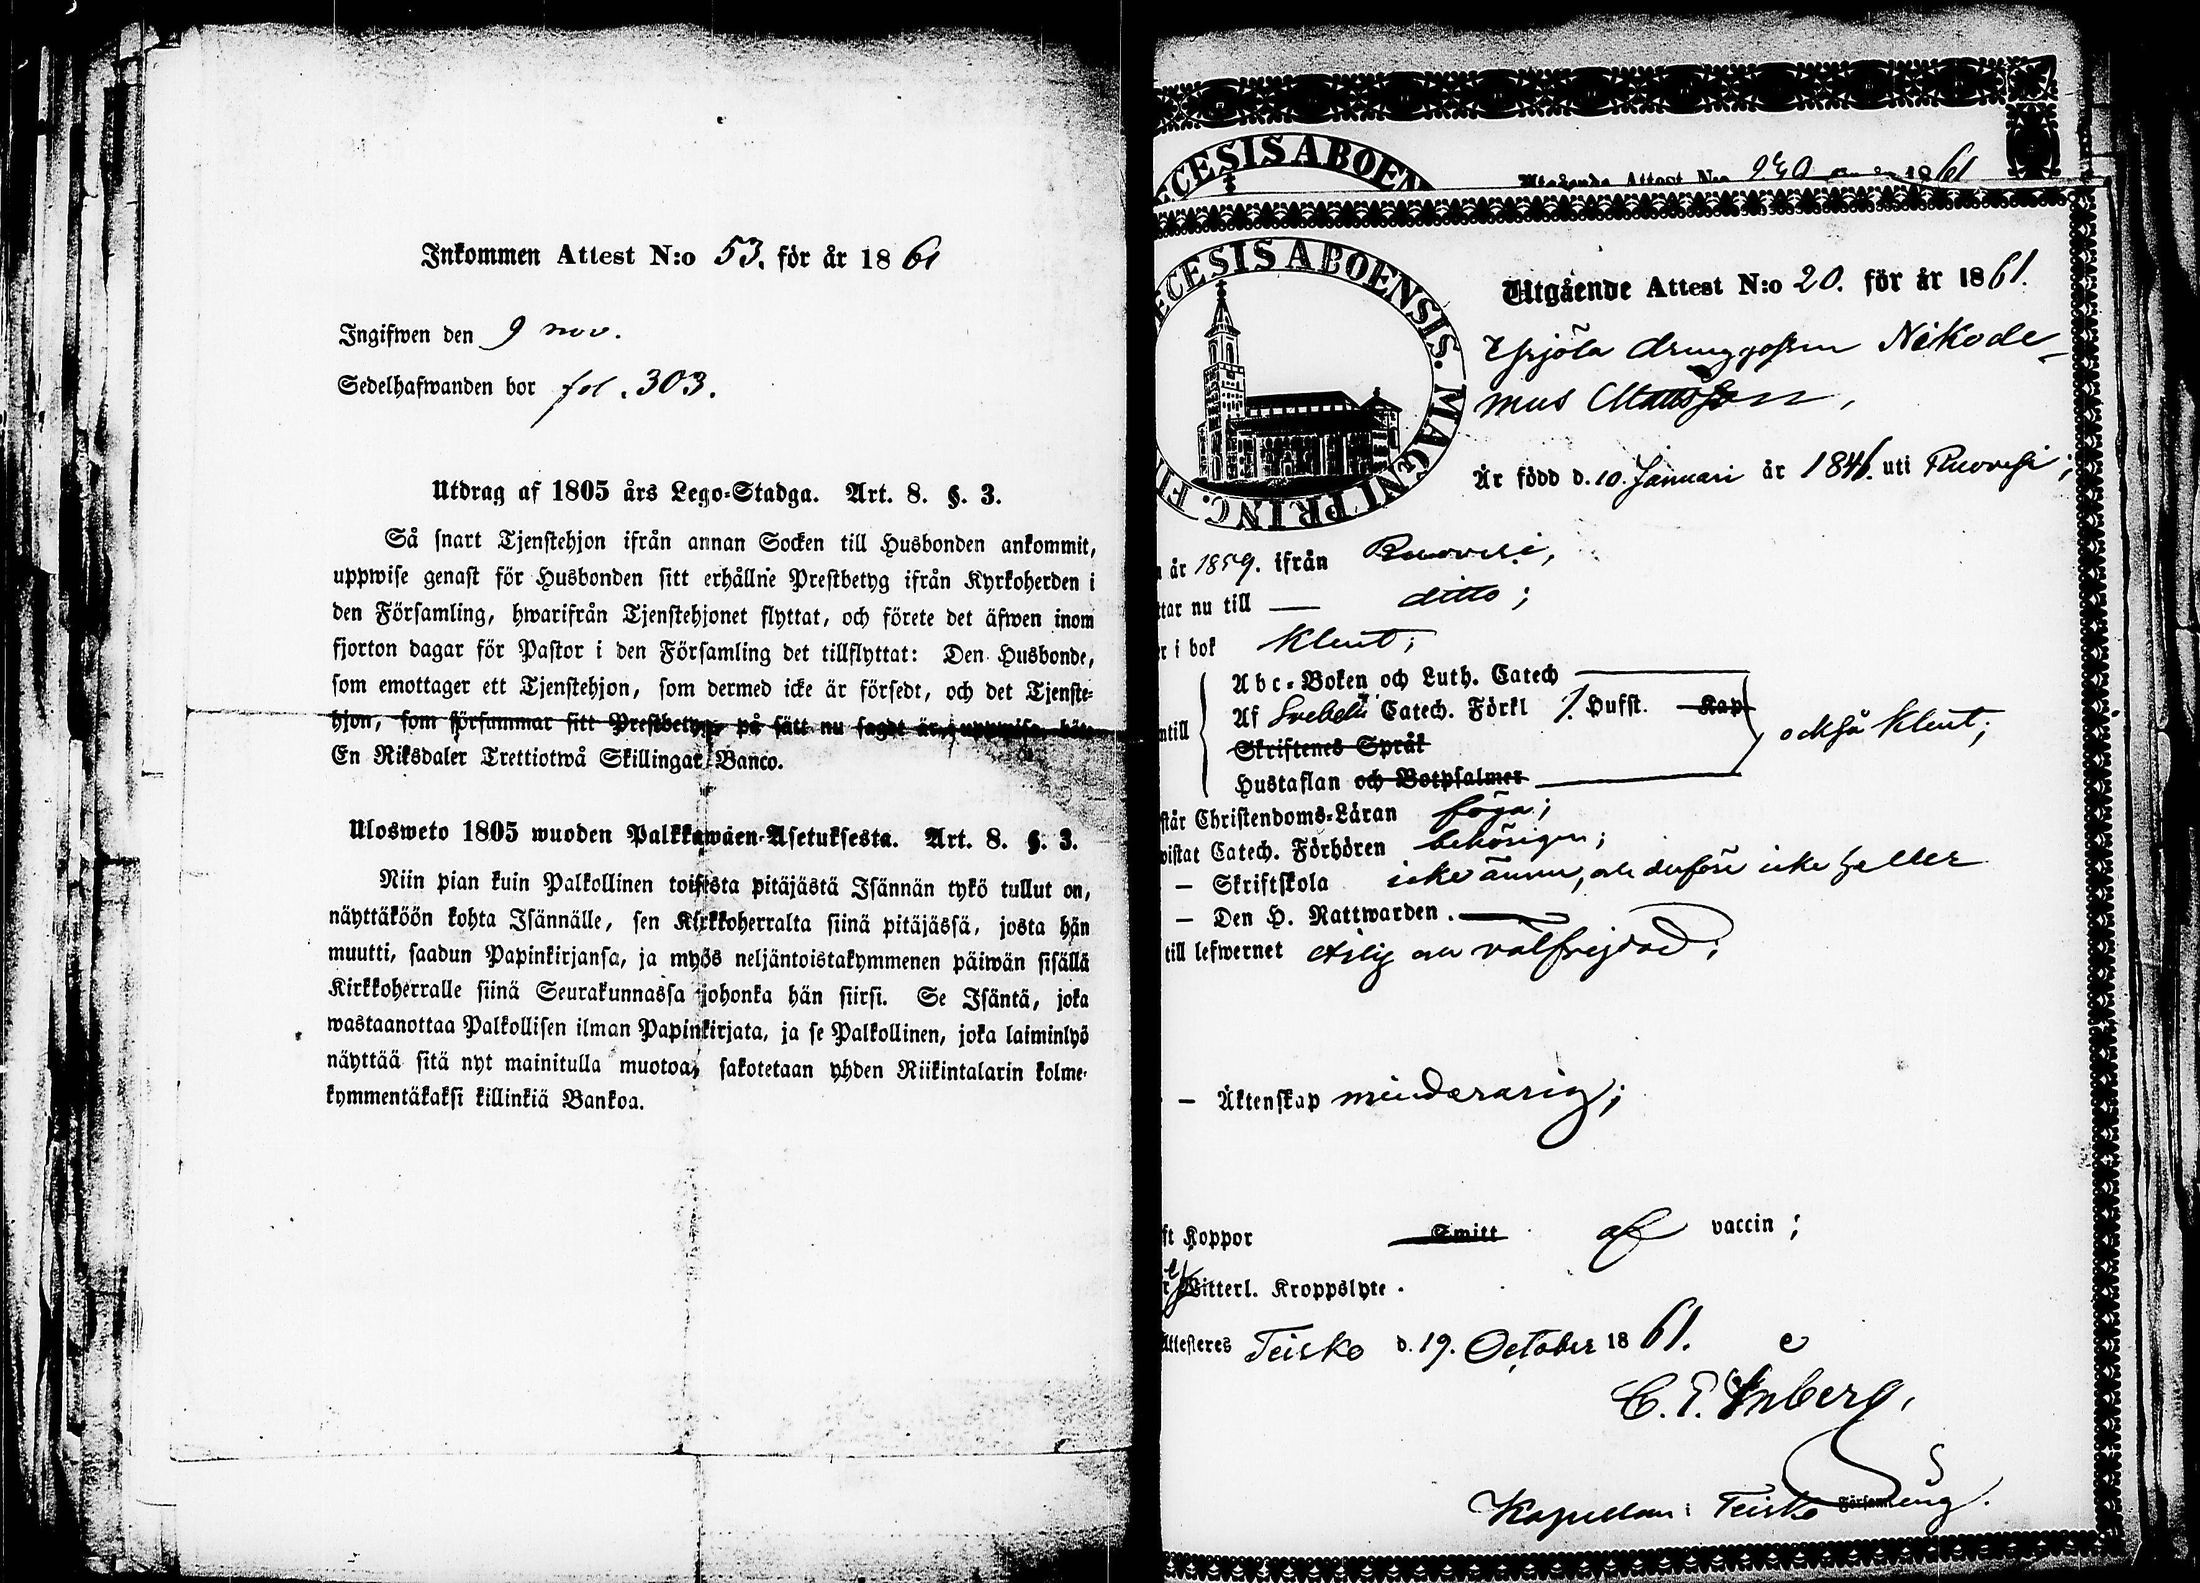 Inkommen Attest N:o 53. för år 1861
Ingifwen den 9 nov.
Sedelhafwanden bor fol. 303.
Utdrag af 1805 års Lego-Stadga. Art. 8. §. 3.
Så snart Tjenstehjon ifrån annan Socken till Husbonden ankommit,
uppwise genast för Husbonden sitt erhållne Prestbetyg ifrån Kyrkoherden i
den Församling, hwarifrån Tjenstehjonet flyttat, och förete det äfwen inom
fjorton dagar för Pastor i den Församling det tillflyttat: Den Husbonde,
som emottager ett Tjenstehjon, som dermed icke är försedt, och det Tjenste-
hjon, som försummar sitt Prestbetyg på sätt nu sagdt är, uppwisa, böte
En Riksdaler Trettiotwå Skillingar Banco.
Ulosweto 1805 wuoden Palkkawäen-Asetuksesta. Art. 8. §. 3.
Niin pian kuin Palkollinen toisesta pitäjästä Isännän tykö tullut on,
näyttäköön kohta Isännälle, sen Kirkkoherralta siinä pitäjässä, josta hän
muutti, saadun Papinkirjansa, ja myös neljäntoistakymmenen päiwän sisällä
Kirkkoherralle siinä Seurakunnassa johonka hän siirsi. Se Isäntä, joka
wastaanottaa Palkollisen ilman Papinkirjata, ja se Palkollinen, joka laiminlyö
näyttää sitä nyt mainitulla muotoa, sakotetaan yhden Riikintalarin kolme-
kymmentäkaksi killinkiä Bankoa.
ECESIS ABOEN
Utgående Attest N:o 1861
ECESIS ABOENSIS. MAGNI PRINC. FI
Utgående Attest N:o 20. för år 1861.
drenggossen Nikode-
mus Mattsson,
Är född d. 10. Januari år 1846. uti Ruovesi;
år 1859. ifrån Ruovesi,
ttar nu till — ditto;
r i bok klent;
Abc-Boken och Luth. Catech
ntill Af Svebelii Catech. Förkl 1. Hufst. Kap
också klent;
Skriftenes Språk
Hustaflan och Botpsalmer
står Christendoms-Läran föga;
wistat Catech. Förhören behörigen;
— Skriftskola icke ännu, och derföre icke heller
— Den H. Nattwarden.
till lefwernet ärlig och välfrejdad;
— Äktenskap minderårig;
ft Koppor Smitt af vaccin;
Witterl. Kroppslyte.
Attesteres Teisko d. 19. October 1861.
C. E. Enberg,
Kapellan i Teisko Församling.